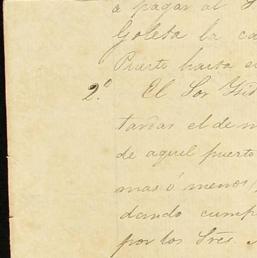 a pagar al
Goleta la ca
Puerto hasta e
2.º El Sor Ysid
tarias el de m
de aquel puerto
mas ó menos,
dando cump
por los Sres.